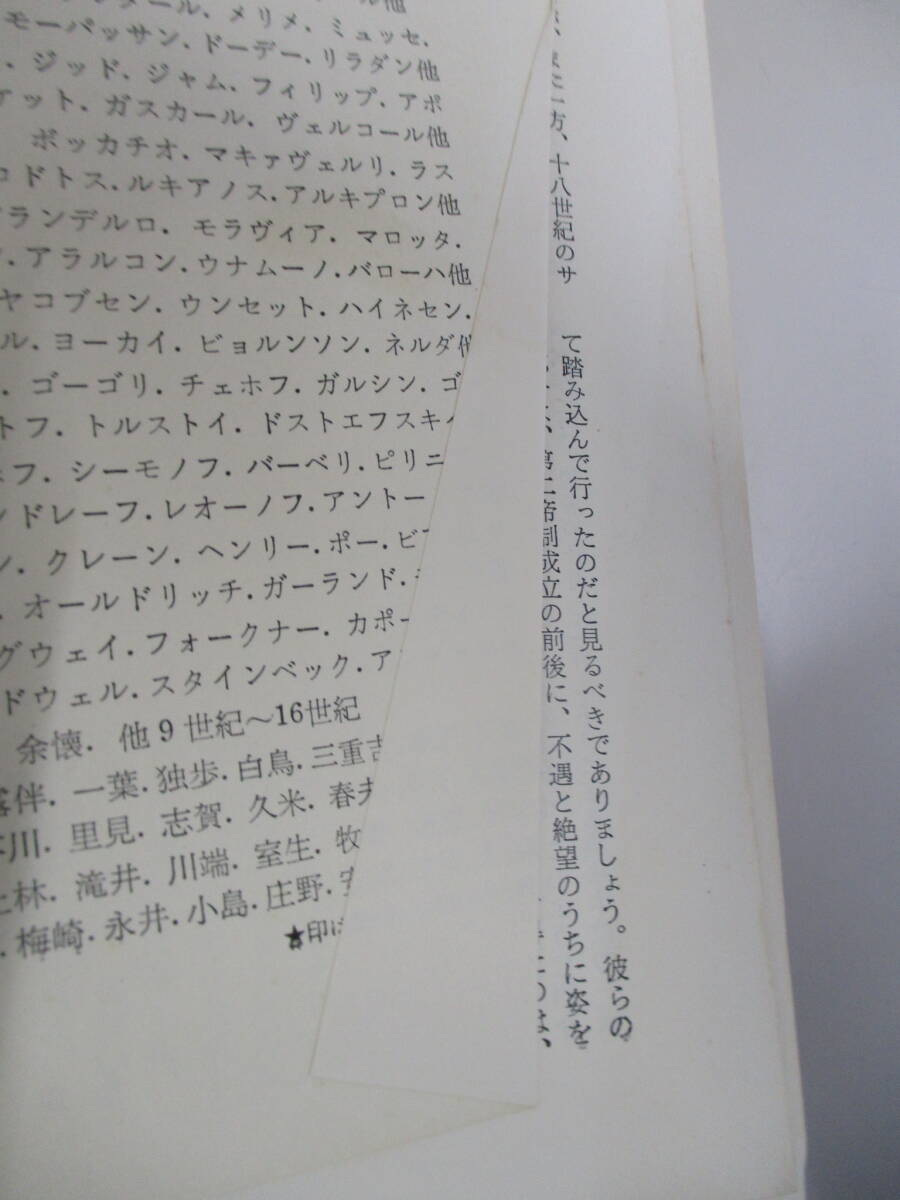 メリメ．ミュッセ．
モーパッサン．ドーデー．リラダン他
ジッド．ジャム．フィリップ．アポ
ケット．ガスカール．ヴェルコール他
ボッカチオ．マキァヴェルリ．ラス
ロドトス．ルキアノス．アルキプロン他
ランデルロ．モラヴィア．マロッタ．
アラルコン．ウナムーノ．バローハ他
ヤコブセン．ウンセット．ハイネセン．
ル．ヨーカイ．ビョルンソン．ネルダ他
．ゴーゴリ．チェホフ．ガルシン．ゴ
トフ．トルストイ．ドストエフスキ
フ．シーモノフ．バーベリ．ピリニ
ンドレーフ．レオーノフ．アントー
ン．クレーン．ヘンリー．ポー．ビ
．オールドリッチ．ガーランド．
グウェイ．フォークナー．カポー
ドウェル．スタインベック．ア
余懐．他9世紀～16世紀
伴．一葉．独歩．白鳥．三重吉
川．里見．志賀．久米．春
林．滝井．川端．室生．牧
．梅崎．永井．小島．庄野．
★印は
て踏み込んで行ったのだと見るべきでありましょう。彼らの
第二帝制成立の前後に、不遇と絶望のうちに姿を
一方、十八世紀のサ
のは、